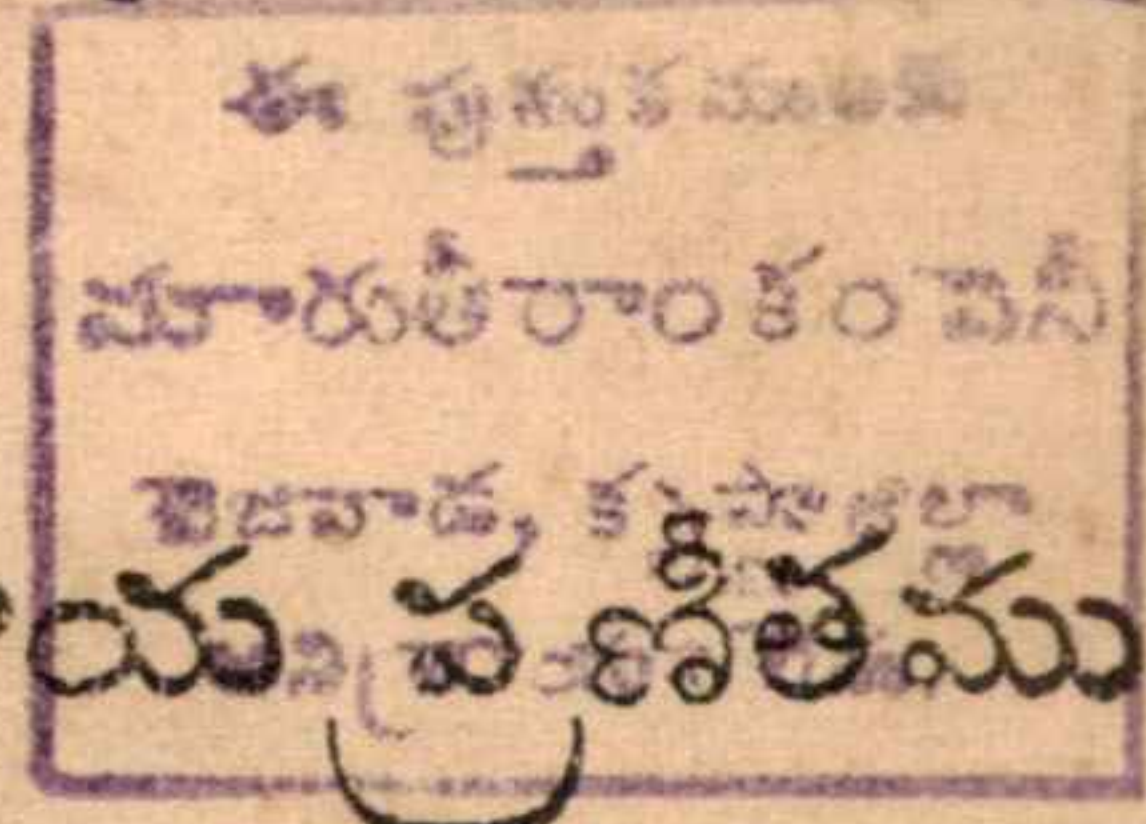 ఈ పుస్తకములు
మారుతీరాంకంపెనీ
బెజవాడ, కృష్ణాజిల్లా
య ప్రణీతము